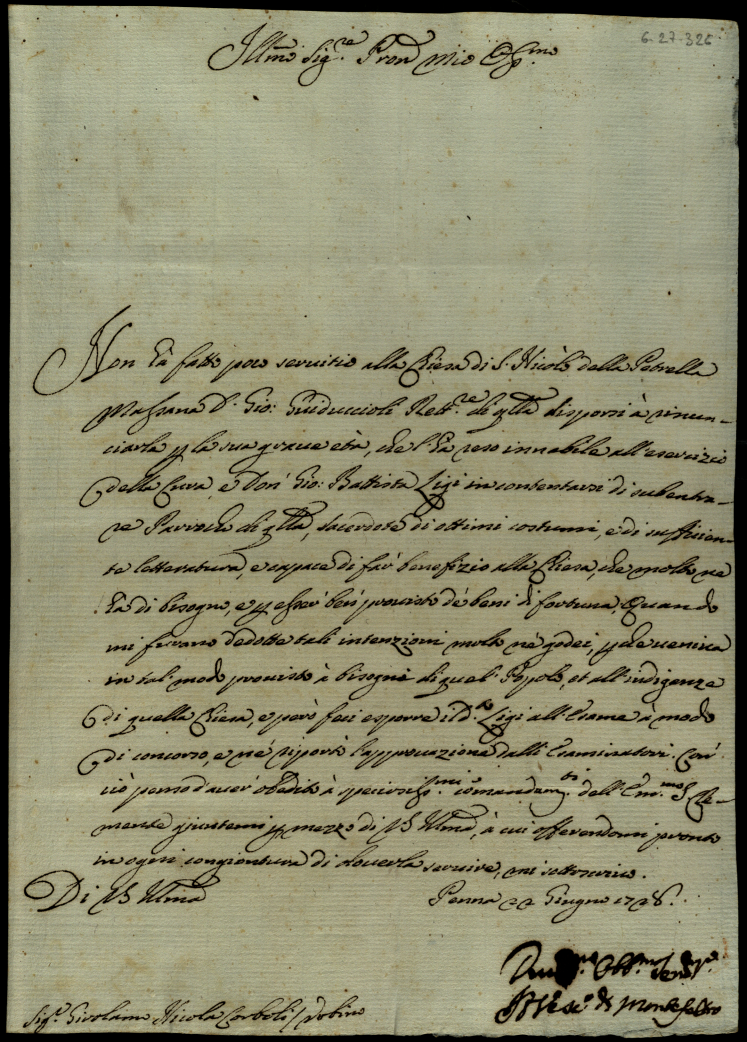 6-27-326
Illmo Sig.re Pron mio Oss.mo
Non hà fatto poco servitio alla Chiesa di S. Nicolò della Petrella
Massana D. Gio: Guiduccioli Rett.re di qlla disporsi à rinun-
ciarla p la sua grave età, che l'hà reso innabile all'esercizio
della Cura, e Don Gio: Battista Ligi in contentarsi di subentra-
re Parroco di qlla, sacerdote di ottimi costumi, e di sufficien-
te letteratura, e capace di far benefizio alla Chiesa, che molto ne
hà di bisogno, e p esser ben provisto de beni di fortuna. Quando
mi furono dedotte tali intenzioni molto ne godei, p che veniva
in tal modo provisto à bisogni di quel Popolo, et all'indigenze
di quella Chiesa, e però feci esporre il d.to Ligi all'Esame à modo
di concorso, e ne riportò l'approvazione dalli Esaminatori. Con
ciò penso d'aver obedito à speciosiss.mi comandam.ti dell'Em.mo S. Cle-
mente giuntemi p mezzo di VS Illma, à cui offerendomi pronto
in ogni congiontura di doverla servire, mi sottoscrivo.
Di VS Illma Penna 22 Giugno 1728.
Obb.mo
Vesc.o di Montefeltro
Sig.r Girolamo Nicola Corboli / Urbino